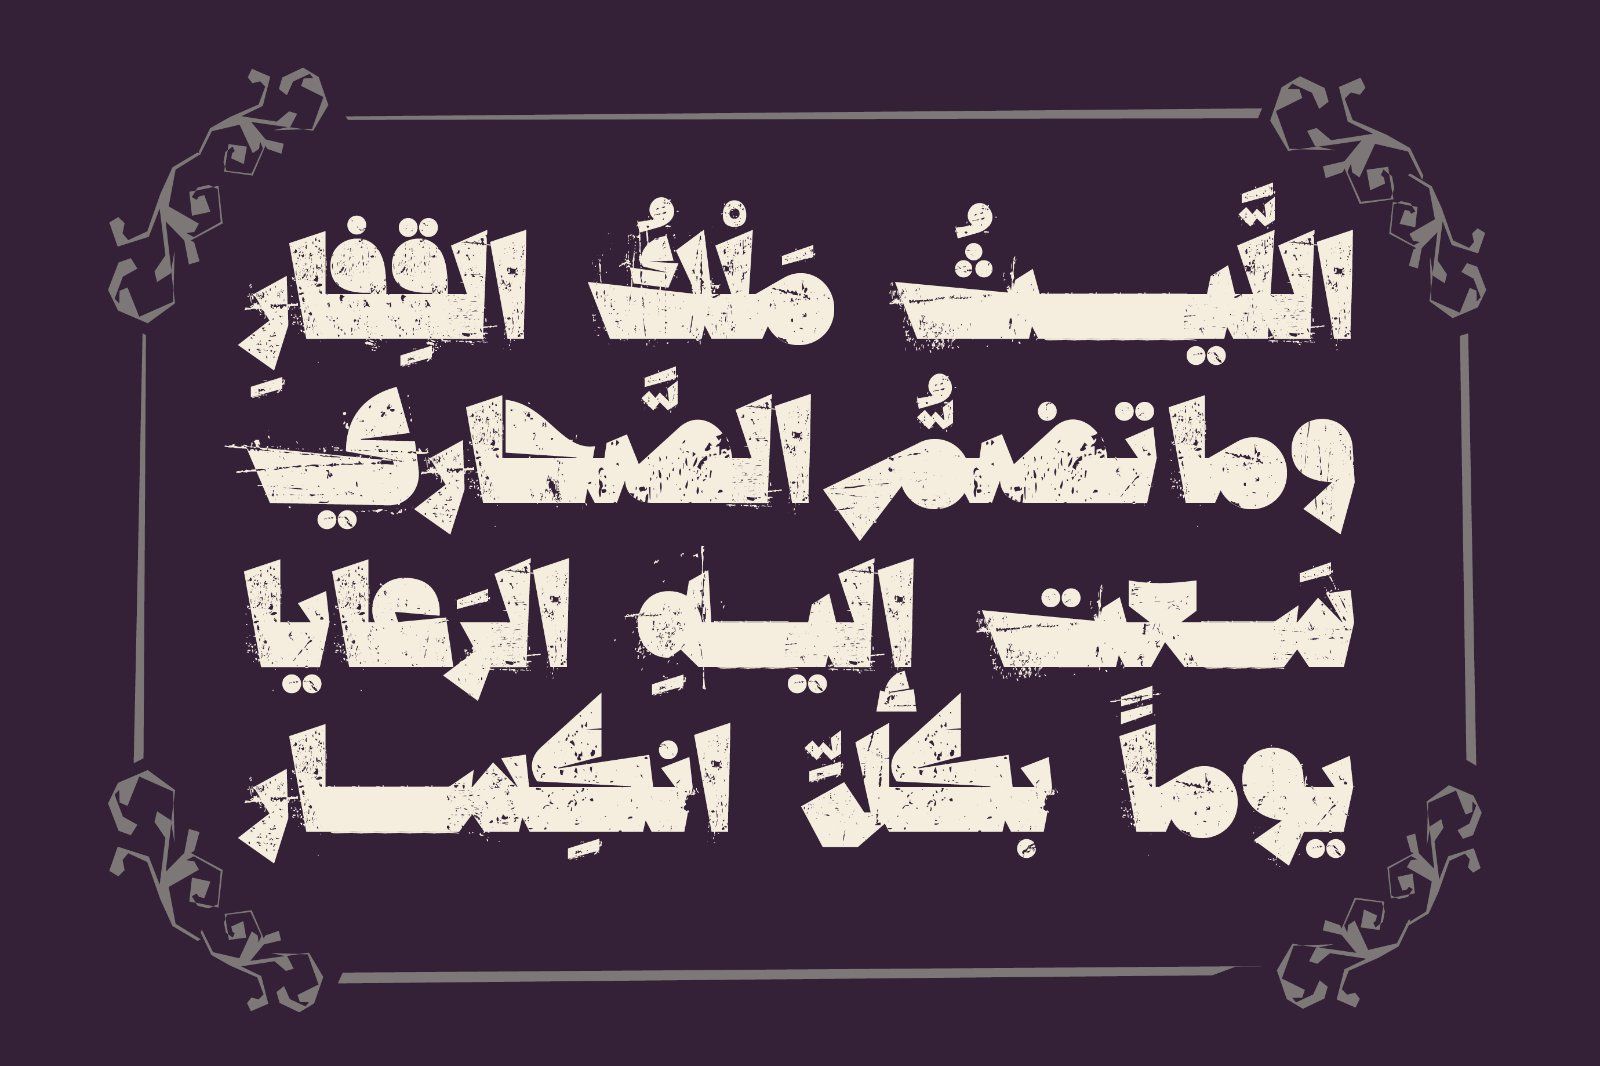 اللَّيـــثُ مَلْكُ القِفارِ
وما تضمُّ الصَّحاري
سَـعت إليـهِ الرَعايا
يوماً بكلِّ انكِســارِ